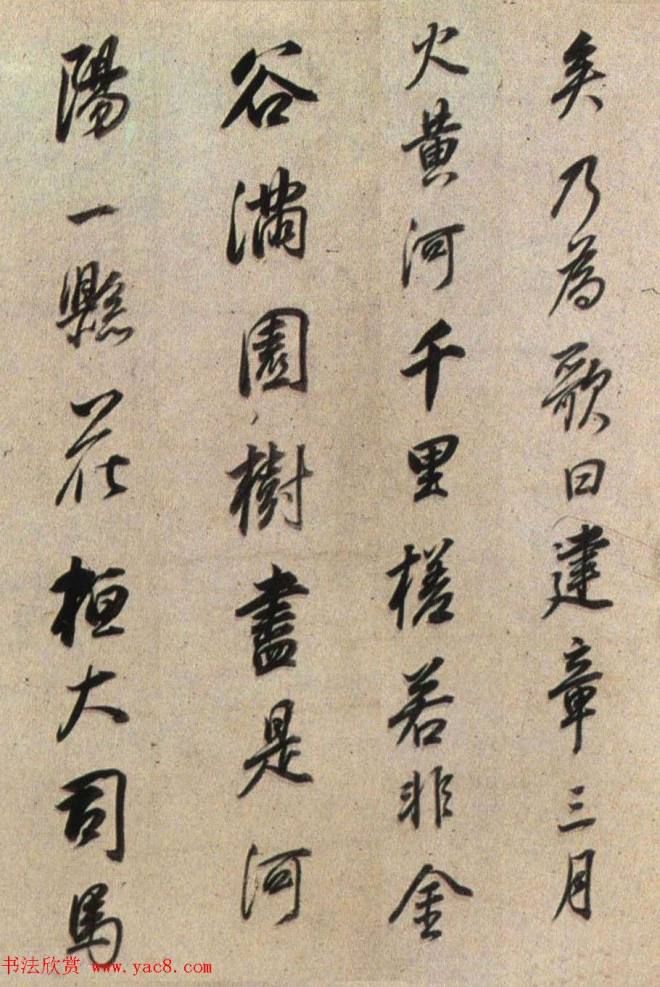 矣乃為歌曰建章三月
火黄河千里槎若非金
谷滿園樹盡是河
陽一縣花桓大司馬
书法欣赏 www.yac8.com